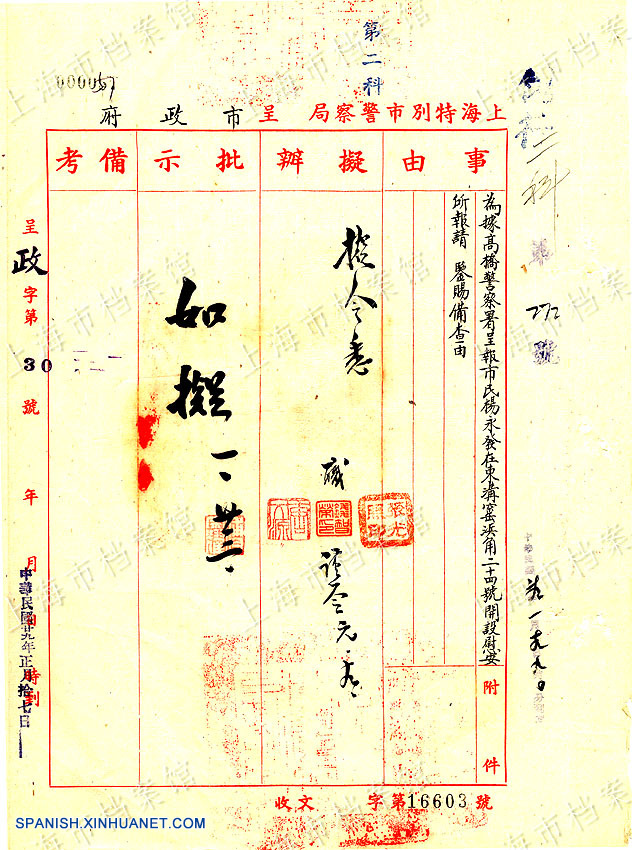 000057
第二科
上海特別市警察局 呈 市政府
事由
擬辦
批示
備考
為據高橋警察署呈報市民楊永發在東溝窰浜角二十四號開設慰安
所報請 鑒賜備查由
附件
擬令悉
職
如擬
呈政字第30號 年 月 日 時到
中華民國廿九年正月拾七日
二科
第 272 號
收文 字第16603號
上海市档案馆
SPANISH.XINHUANET.COM